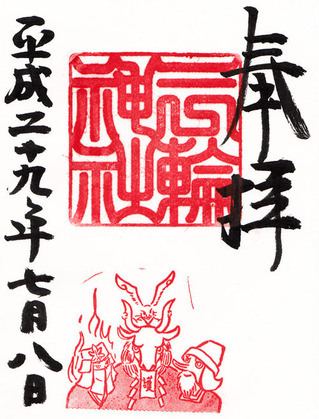 奉拝
三輪
神社
平成二十九年七月八日